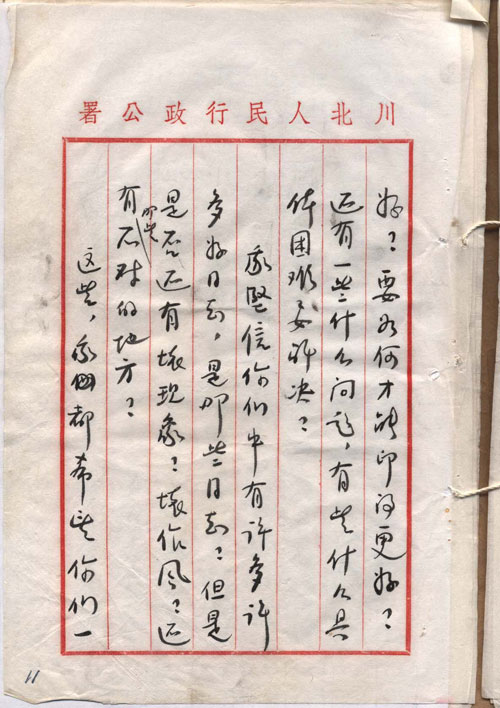 川北人民行政公署
好？要如何才能印得更好？
还有一些什么问题，有些什么具
体困难要解决？
我堅信你们中有许多许
多好同志，是哪些同志？但是
是否还有壞现象？壞作风？还
有哪些不对的地方？
这些，我们都希望你们一
11